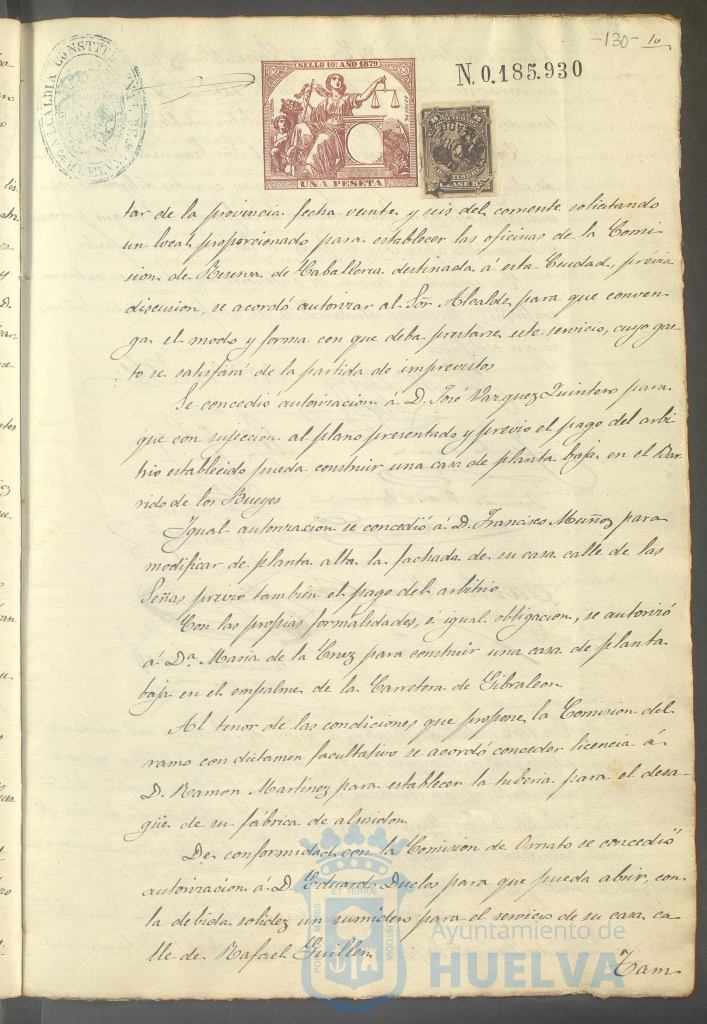 -130- 16
ALCALDIA CONSTITUCIONAL
HUELVA
SELLO 10º AÑO 1879
UNA PESETA
N. 0.185.930
CLASE 8
tar de la provincia fecha veinte y seis del corriente solicitando
un local proporcionado para establecer las oficinas de la Comi-
sion de Reserva de Caballeria destinada á esta Ciudad, previa
discusion, se acordó autorizar al Sor Alcalde, para que conven-
ga el modo y forma con que deba prestarse este servicio, cuyo gas-
to se satisfará de la partida de imprevistos
Se concedió autorizacion á D. José Vazquez Quintero para
que con sujecion al plano presentado y previo el pago del arbi-
trio establecido pueda construir una casa de planta baja en el Bar-
rido de los Bueyes
Igual autorizacion se concedió á D. Francisco Muñoz para
modificar de planta alta la fachada de su casa calle de las
Señas previo tambien el pago del arbitrio
Con las propias formalidades, é igual obligacion, se autorizó
á Da. Maria de la Cruz para construir una casa de planta
baja en el empalme de la Carretera de Gibraleon
Al tenor de las condiciones que propone la Comision del
ramo con dictamen facultativo se acordó conceder licencia á
D. Ramon Martinez para establecer la tuberia para el desa-
güe de su fábrica de almidon
De conformidad con la Comision de Ornato se concedió
autorizacion á D. Eduardo Duclos para que pueda abrir, con
la debida solidez un sumidero para el servicio de su casa ca-
lle de Rafael Guillen
Tam
PORTUS MARIS
ET TERRAE
CUSTODIA
Ayuntamiento de
HUELVA